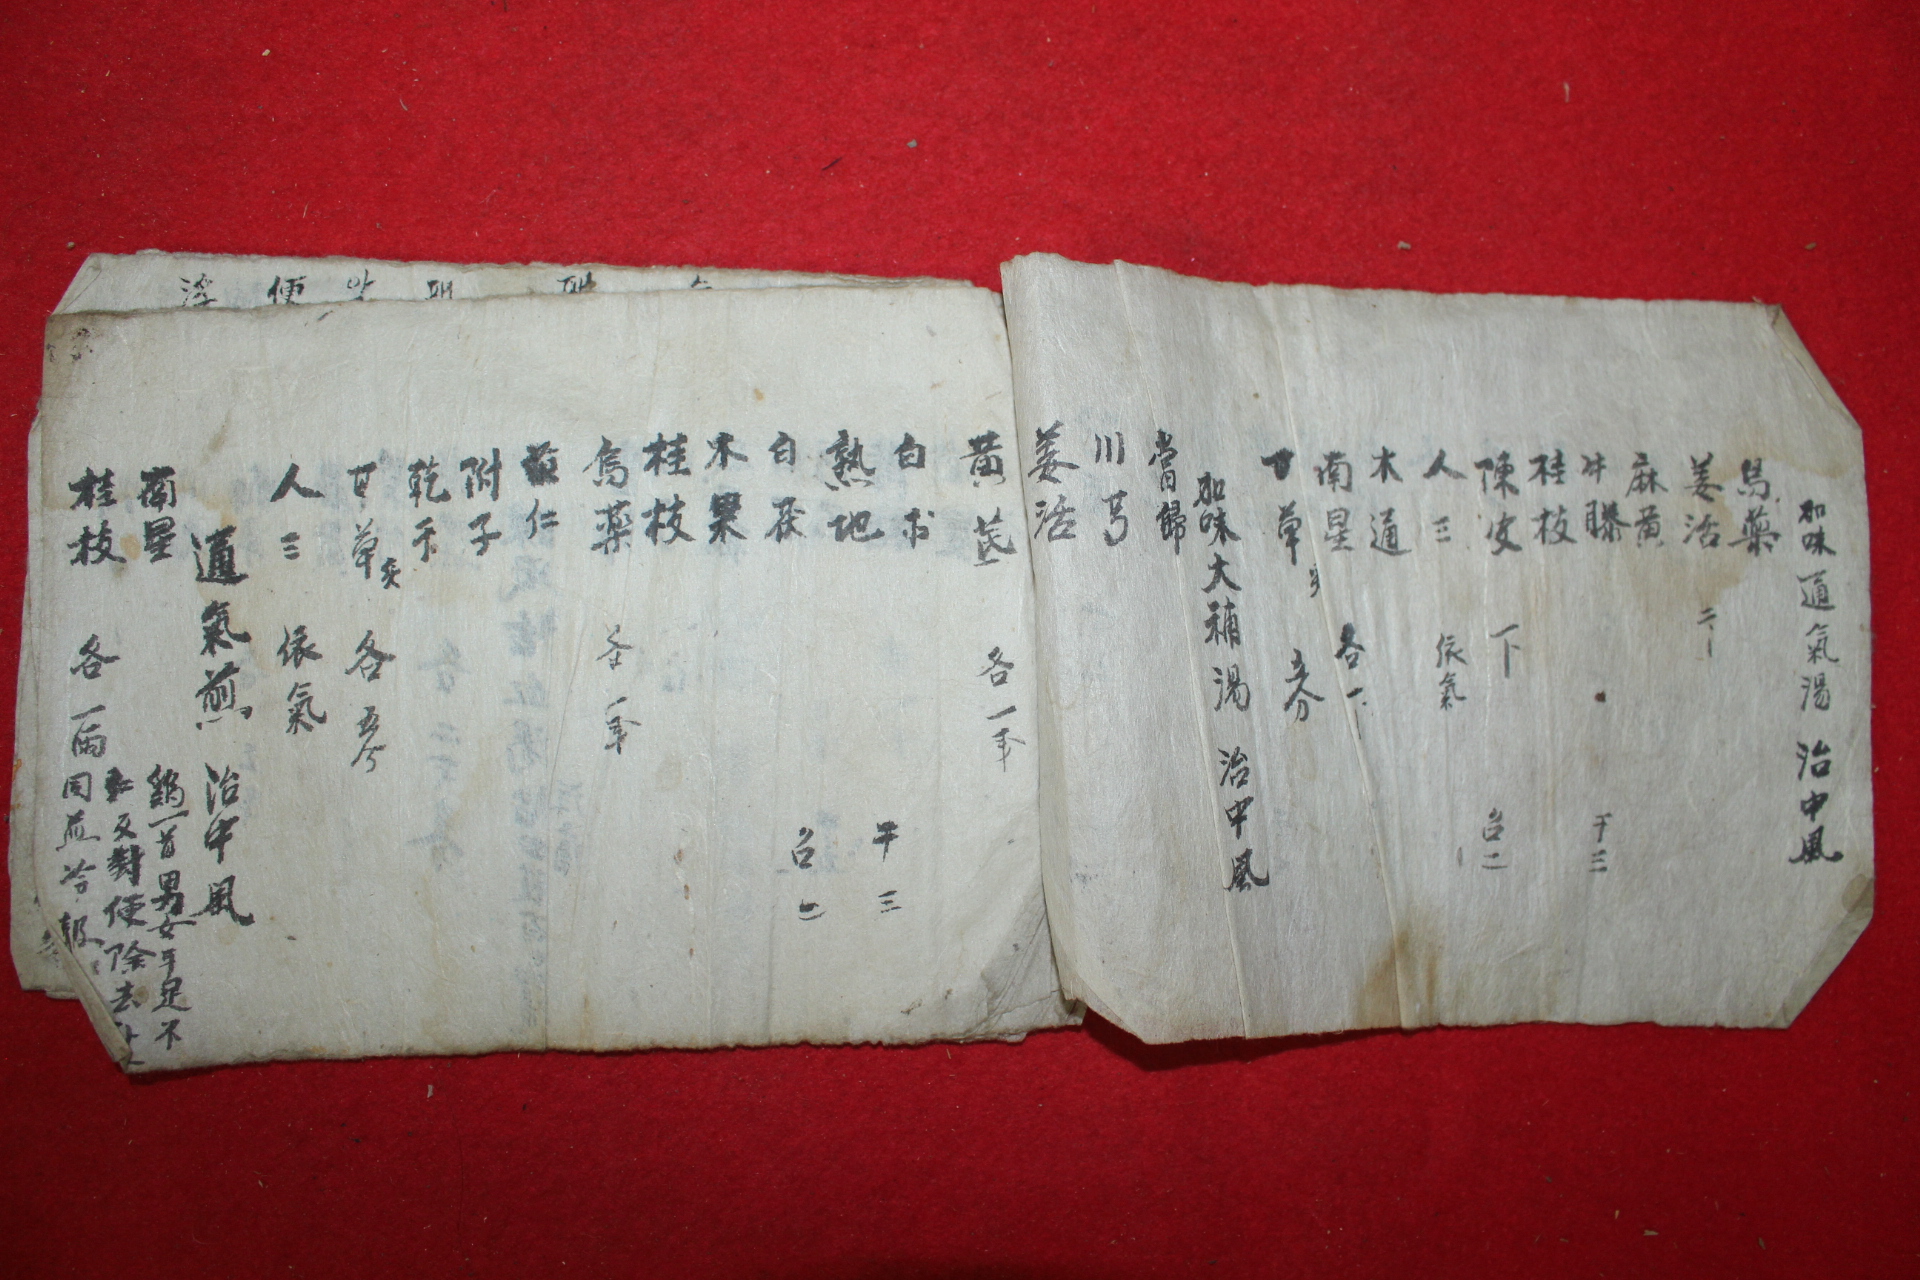 加味通氣湯 治中風
烏藥
羌活 二丁
麻黃
牛膝 干三
桂枝
陳皮 一下 召二
人三 依氣
木通
南星 各一丁
甘草 五分
加味大補湯 治中風
當歸
川芎
羌活
黃芪 各一半
白朮 干三
熟地
白茯 召二
木果
桂枝
烏藥 各一半
苡仁
附子
乾干
甘草炙 各五分
人三 依氣
通氣煎 治中風
南星 鷄一首男女手足不
桂枝 各一兩 又對便除去
同煎冷服
便